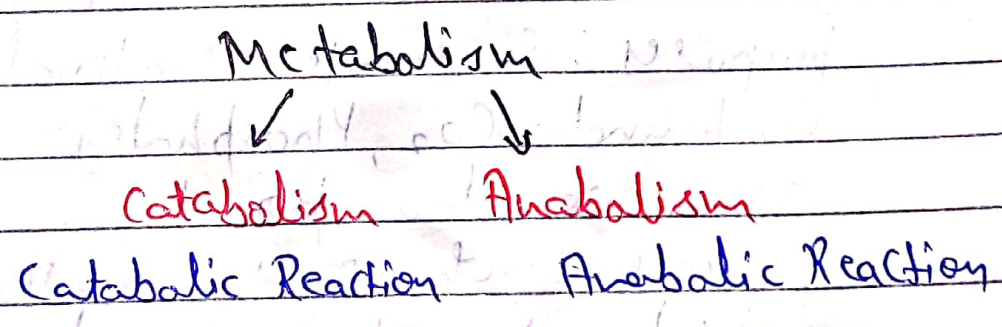 Metabolism
Catabolism Anabolism
Catabalic Reaction Anabalic Reaction